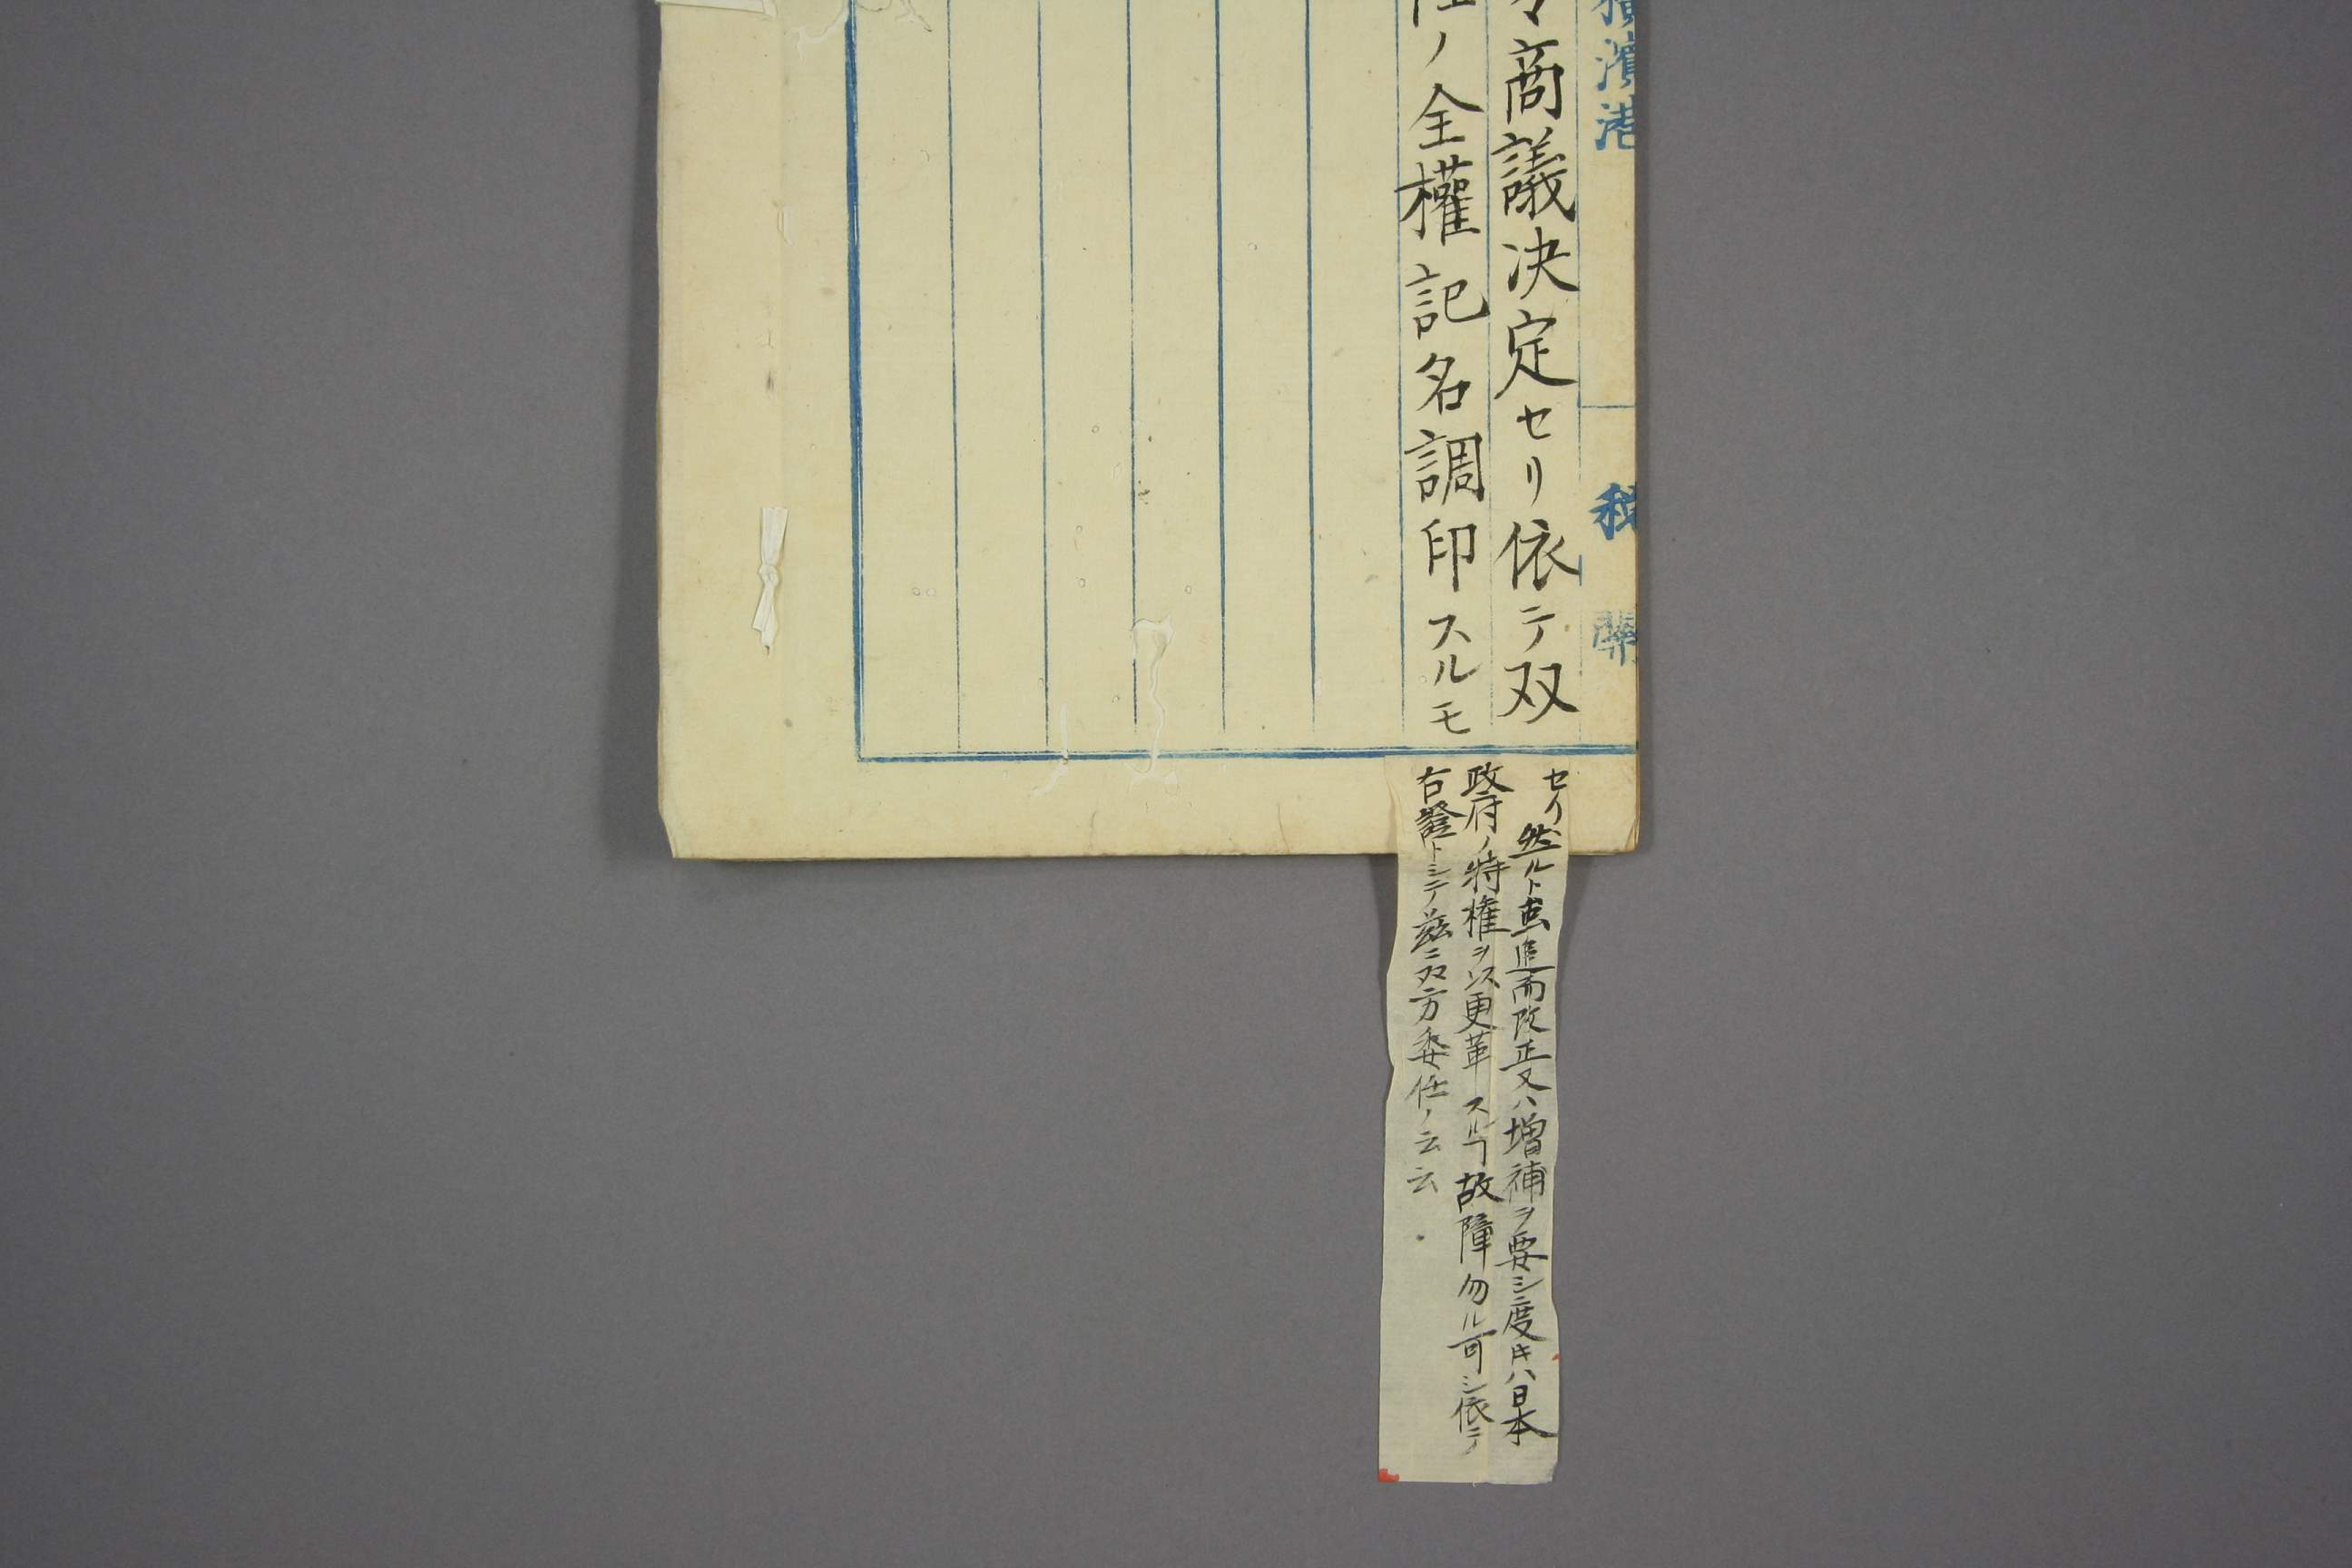 横濱港 税關
令商議決定セリ依テ双
任ノ全權記名調印スルモ
セリ然ルト虽追而改正又ハ増補ヲ要シ度キハ日本
政府ノ特権ヲ以更革スルヿ故障勿ル可シ依テ
右證トシテ茲ニ双方委任ノ云云